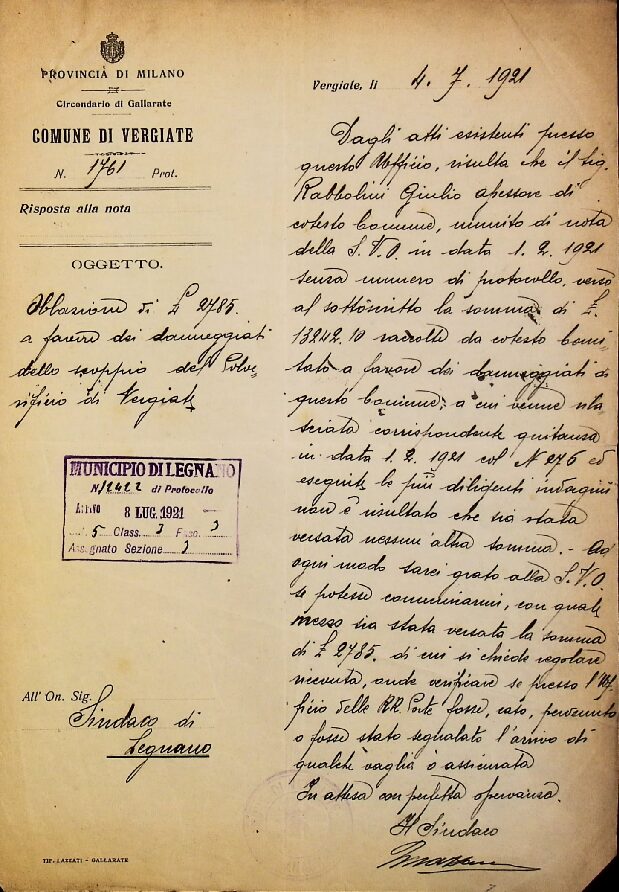 PROVINCIA DI MILANO
Circondario di Gallarate
COMUNE DI VERGIATE
N. 1761 Prot.
Risposta alla nota
OGGETTO.
Oblazione di £ 2785.
a favore dei danneggiati
dello scoppio del Polve-
rificio di Vergiate
MUNICIPIO DI LEGNANO
N/12422 di Protocollo
ARRIVO 8 LUG. 1921
5 Class. 3 Fasc. 3
Assegnato Sezione 3
All' On. Sig.
Sindaco di
Legnano
TIP. LAZZATI - GALLARATE
Vergiate, li 4. 7. 1921
Dagli atti esistenti presso
questo Ufficio, risulta che il sig.
Rabbolini Giulio assessore di
cotesto Comune, munito di nota
della S.V.O. in data 1. 2. 1921
senza numero di protocollo, versò
al sottoscritto la somma di £.
13242.10 raccolte da cotesto Comi-
tato a favore dei danneggiati di
questo Comune, a cui venne rila
sciata corrispondente quitanza
in data 1. 2. 1921 col N 276 ed
eseguite le più diligenti indagini
non è risultato che sia stata
versata nessun'altra somma. - Ad
ogni modo sarei grato alla S.V.O.
se potesse comunicarmi, con quale
mezzo sia stata versata la somma
di £ 2785. di cui si chiede regolare
ricevuta, onde verificare se presso l'Uf-
ficio delle RR. Poste fosse, caso, pervenuto
o fosse stato segnalato l'arrivo di
qualche vaglia o assicurata
In attesa con perfetta osservanza.
Il Sindaco